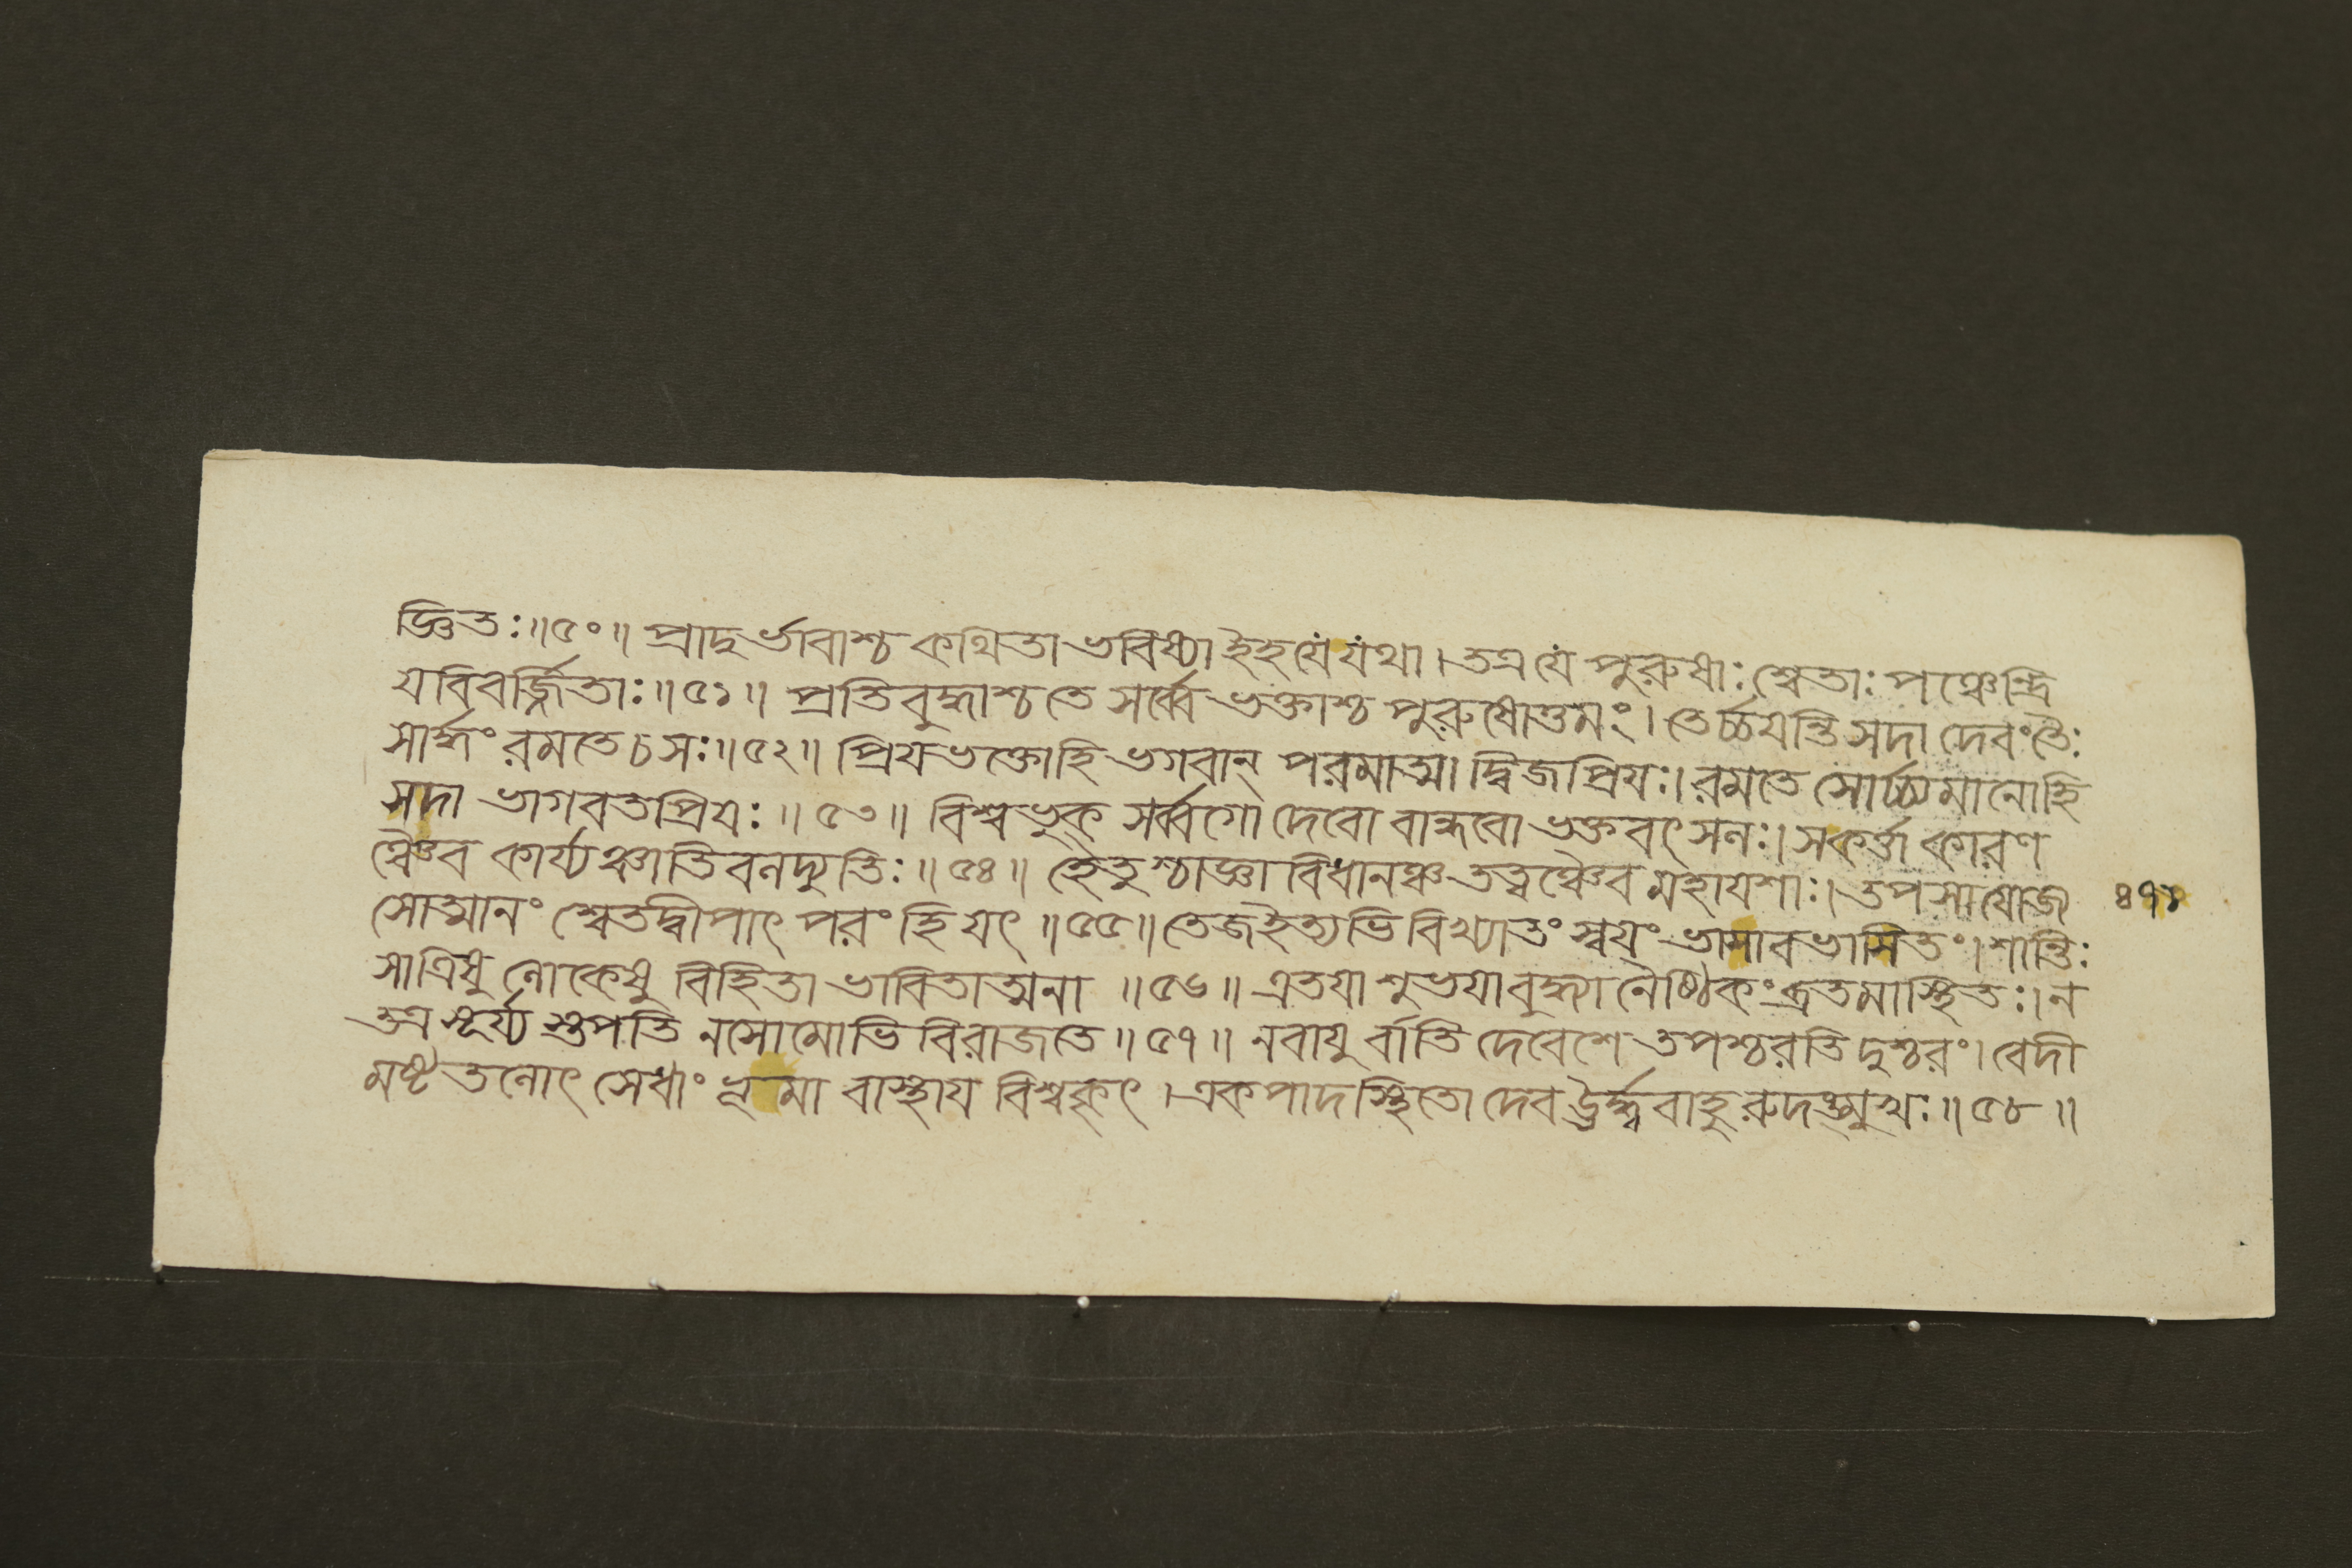 জ্ঞিতঃ॥৫০॥ প্রাদুর্ভাবাশ্চ কথিতা ভবিষ্যা ইহ যে যথা। তত্র যে পুরুষাঃ শ্বেতাঃ পঞ্চেন্দ্রি
যবিবর্জ্জিতাঃ॥৫১॥ প্রতিবুদ্ধাশ্চ তে সর্ব্বে ভক্তাশ্চ পুরুষোত্তমং। তের্চ্চযন্তি সদা দেবং তৈঃ
সার্দ্ধং রমতে চ সঃ॥৫২॥ প্রিযভক্তোহি ভগবান্ পরমাত্মা দ্বিজপ্রিযঃ। রমতে সোর্চ্চ্যমানোহি
সদা ভাগবতপ্রিযঃ॥৫৩॥ বিশ্বভুক্ সর্ব্বগো দেবো বান্ধবো ভক্তবৎসলঃ। সকর্ত্তা কারণ
ঞ্চৈব কার্য্যঞ্চাতিবলদ্যুতিঃ॥৫৪॥ হেতুশ্চাজ্ঞা বিধানঞ্চ তত্ত্বঞ্চৈব মহাযশাঃ। তপসা যোজ্য
সোত্মানং শ্বেতদ্বীপাৎ পরং হি যৎ॥৫৫॥ তেজ ইত্যভিবিখ্যাতং স্বযং ভাসাবভাসিতং। শান্তিঃ
সা ত্রিষু লোকেষু বিহিতা ভাবিতাত্মনা॥৫৬॥ এতযা শুভযা বুদ্ধ্যা নৈষ্ঠিকং ব্রতমাস্থিতঃ। ন
তত্র সূর্য্যস্তপতি ন সোমোভিবিরাজতে॥৫৭॥ ন বাযুর্বাতি দেবেশে তপশ্চরতি দুশ্চরং। বেদী
মষ্টতলোৎসেধাং ভূমাবাস্থায বিশ্বকৃৎ। একপাদস্থিতো দেব ঊর্দ্ধ্ববাহুরুদঙ্মুখঃ॥৫৮॥
৪৭৮